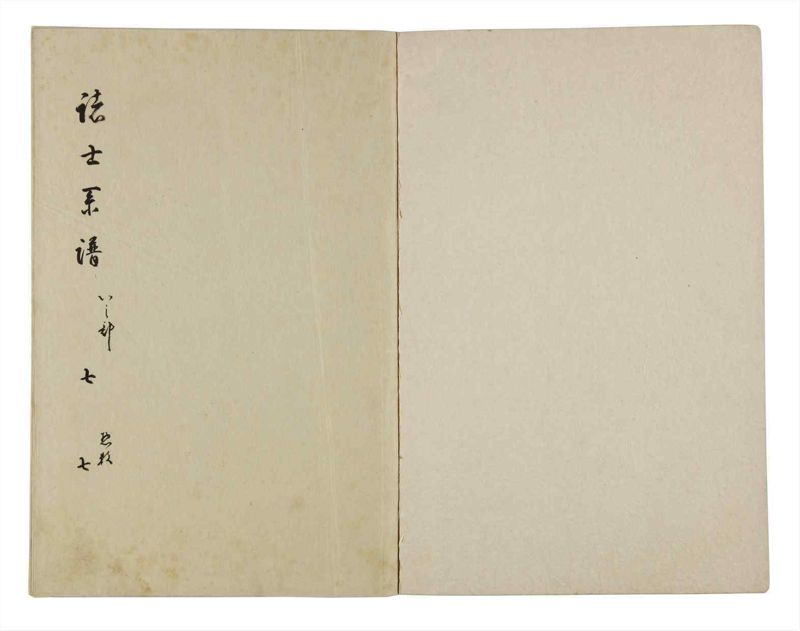 諸士系譜 い之部 七 惣数 七